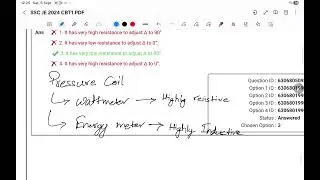 12:25 Sat, 5 Sept
SSC JE 2024 CBT1.PDF
Ans
1. It has very high resistance to adjust Δ to 90°
2. It has very low resistance to adjust Δ to 0°.
3. It has very low resistance to adjust Δ to 90°
4. It has very high resistance to adjust Δ to 0°
Pressure Coil
↳ Wattmeter → Highly reistive
↳ Energy meter → Highly Inductive
Question ID : 630680509
Option 1 ID : 630680199
Option 2 ID : 630680199
Option 3 ID : 630680199
Option 4 ID : 630680199
Status : Answered
Chosen Option : 3